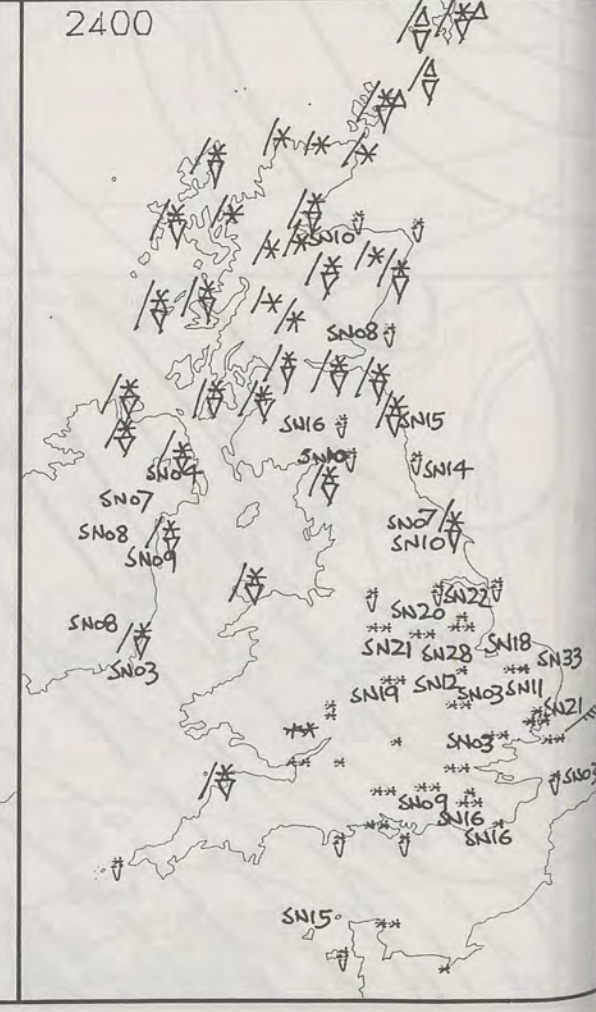 2400
SN10
SN08
SN16
SN15
SN10
SN14
SN04
SN07
SN08
SN09
SN07
SN10
SN08
SN03
SN22
SN20
SN21
SN28
SN18
SN33
SN19
SN12
SN03
SN11
SN21
SN03
SN03
SN09
SN16
SN16
SN15